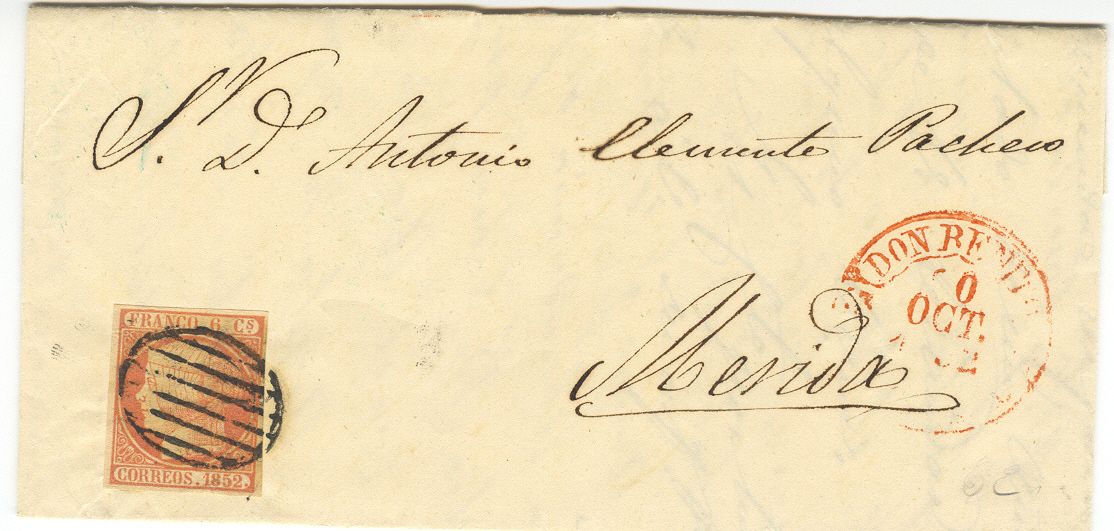 Sr. D. Antonio Clemente Pacheco
Merida
DON BENI
OCT.
FRANCO 6 Cs
CORREOS. 1852.